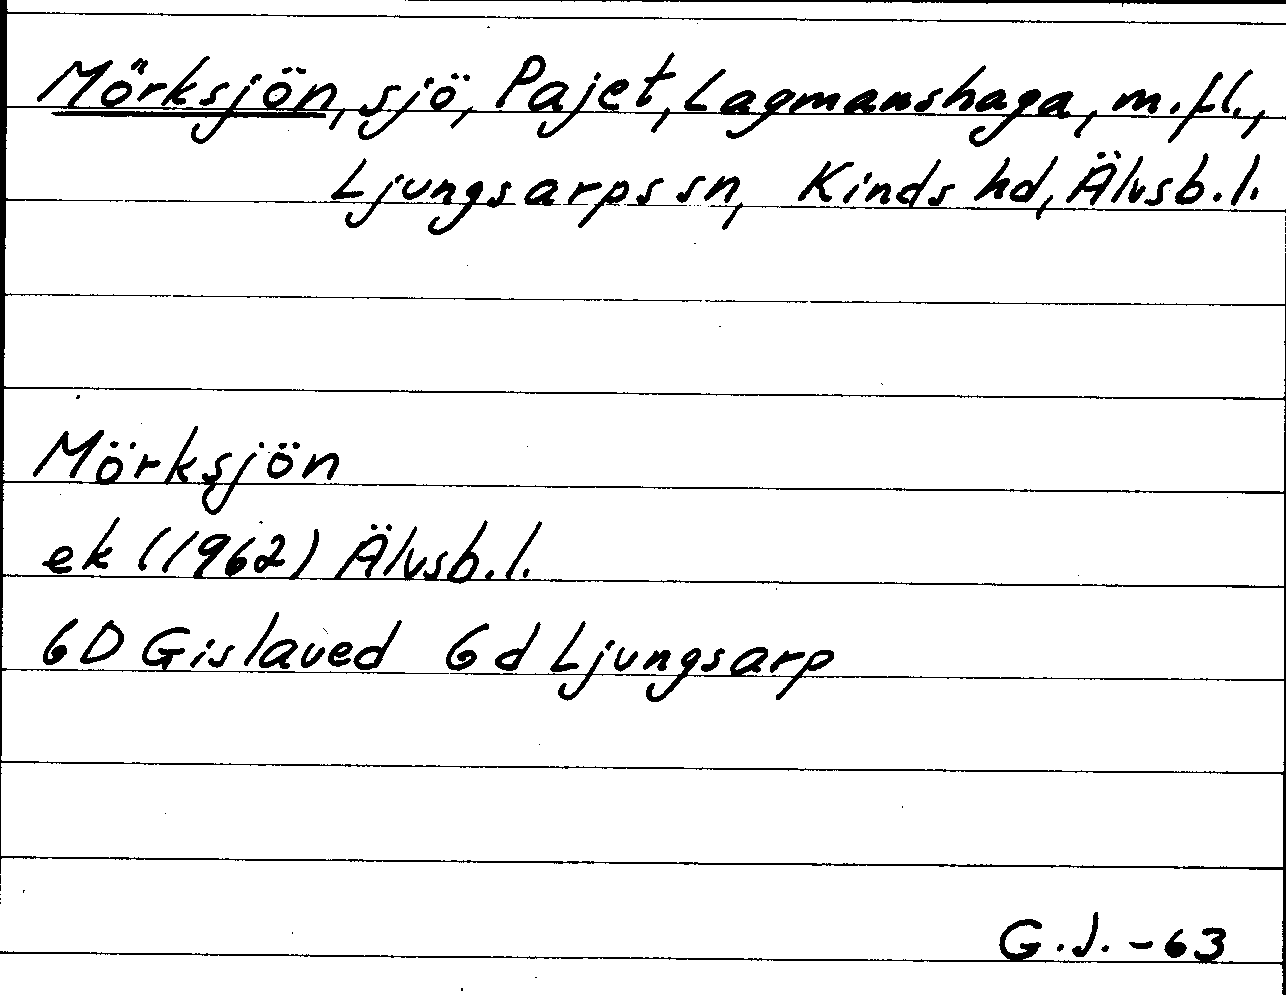 Mörksjön, sjö, Pajet, Lagmanshaga, m.fl.,
Ljungsarps sn, Kinds hd, Älvsb.l.
Mörksjön
ek (1962) Älvsb.l.
6D Gislaved 6d Ljungsarp
G.J.-63